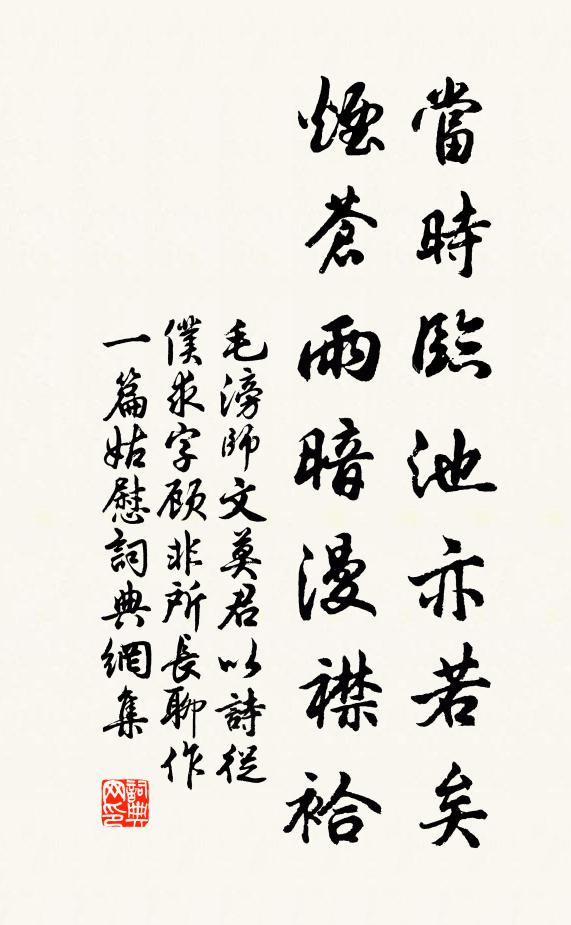 當時臨池亦若矣
煙蒼雨暗漫襟袷
毛滂師文莫君以詩從
僕求字顧非所長聊作
一篇姑慰詞典網集
詞典
网印